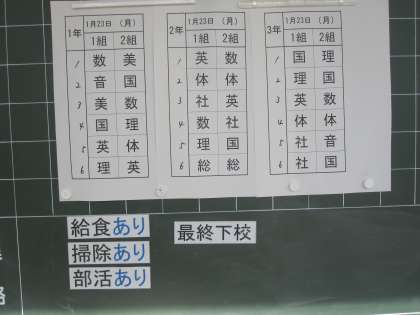 1年 1月23日 (月)
1組 2組
1 数 美
2 音 国
3 美 数
4 国 理
5 英 体
6 理 英
2年 1月23日 (月)
1組 2組
1 英 数
2 体 体
3 社 英
4 数 社
5 理 国
6 総 総
3年 1月23日 (月)
1組 2組
1 国 理
2 理 国
3 英 数
4 体 体
5 社 音
6 社 国
給食あり
掃除あり
部活あり
最終下校